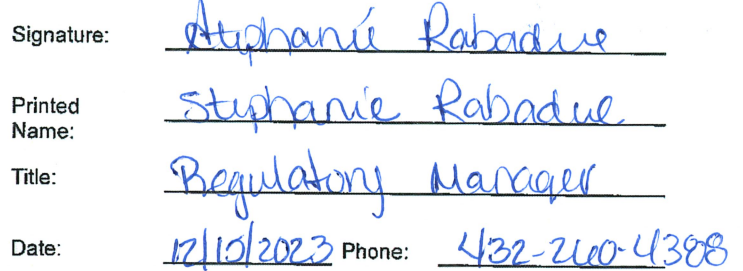 Signature: Stephanie Rabadue
Printed
Name: Stephanie Rabadue
Title: Regulatory Manager
Date: 12/10/2023 Phone: 432-260-4388